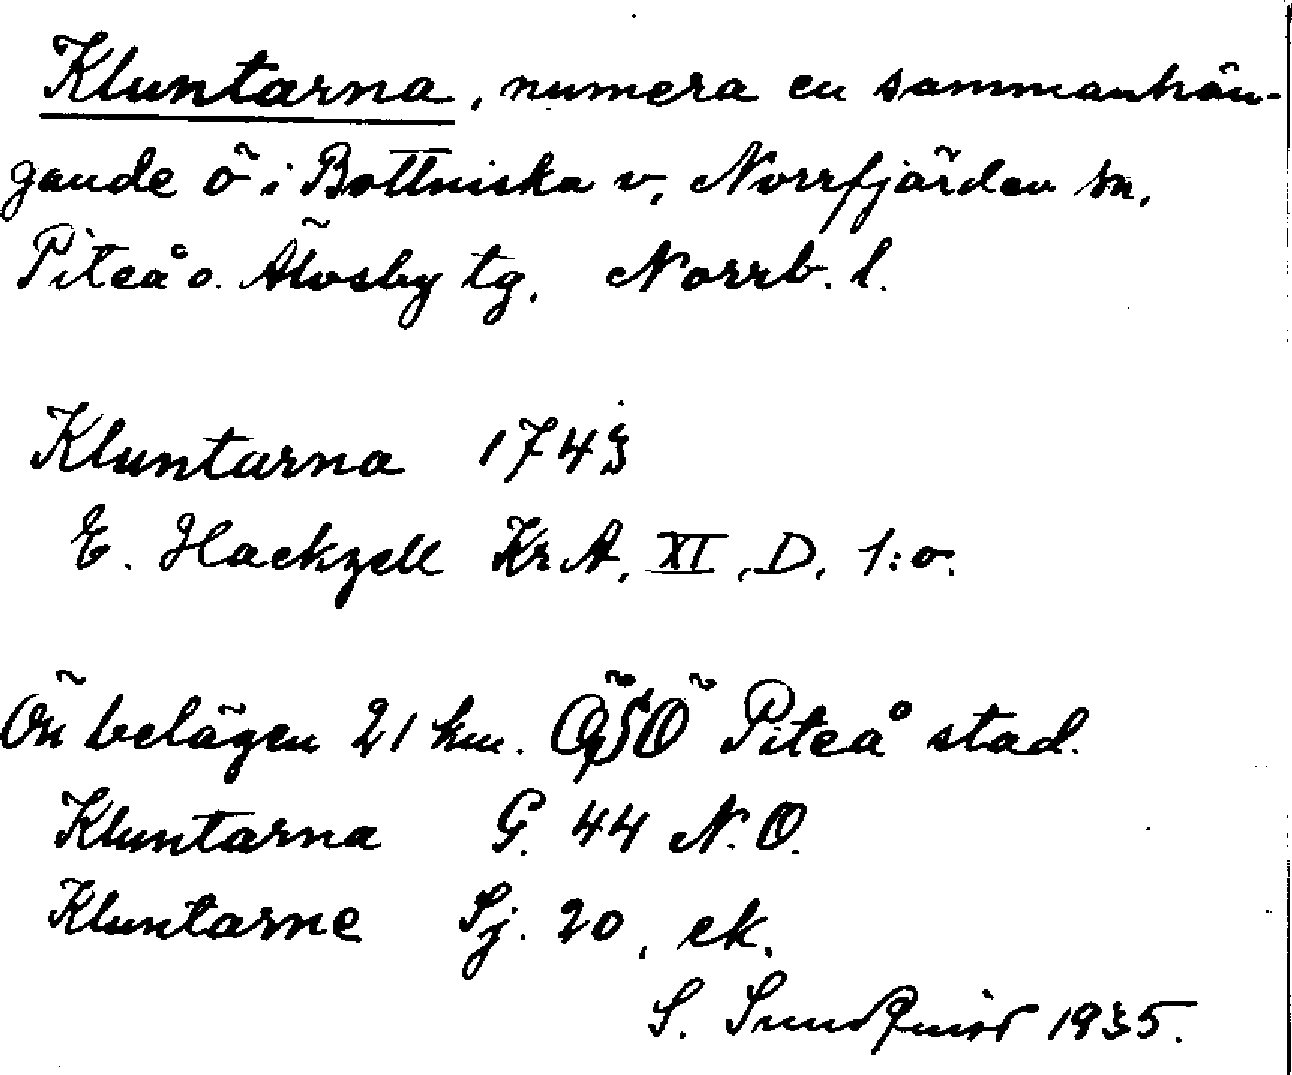 Kluntarna, numera en sammanhän-
gande ö i Bottniska v, Norrfjärden sn,
Piteå o. Älvsby tg, Norrb. l.
Kluntarna 1743
E. Hackzell Kr A, XI, D, 1:o.
Ön belägen 21 km. ÖSÖ Piteå stad.
Kluntarna G. 44 N. O.
Kluntarne Sj. 20, ek.
S. Sundquist 1935.